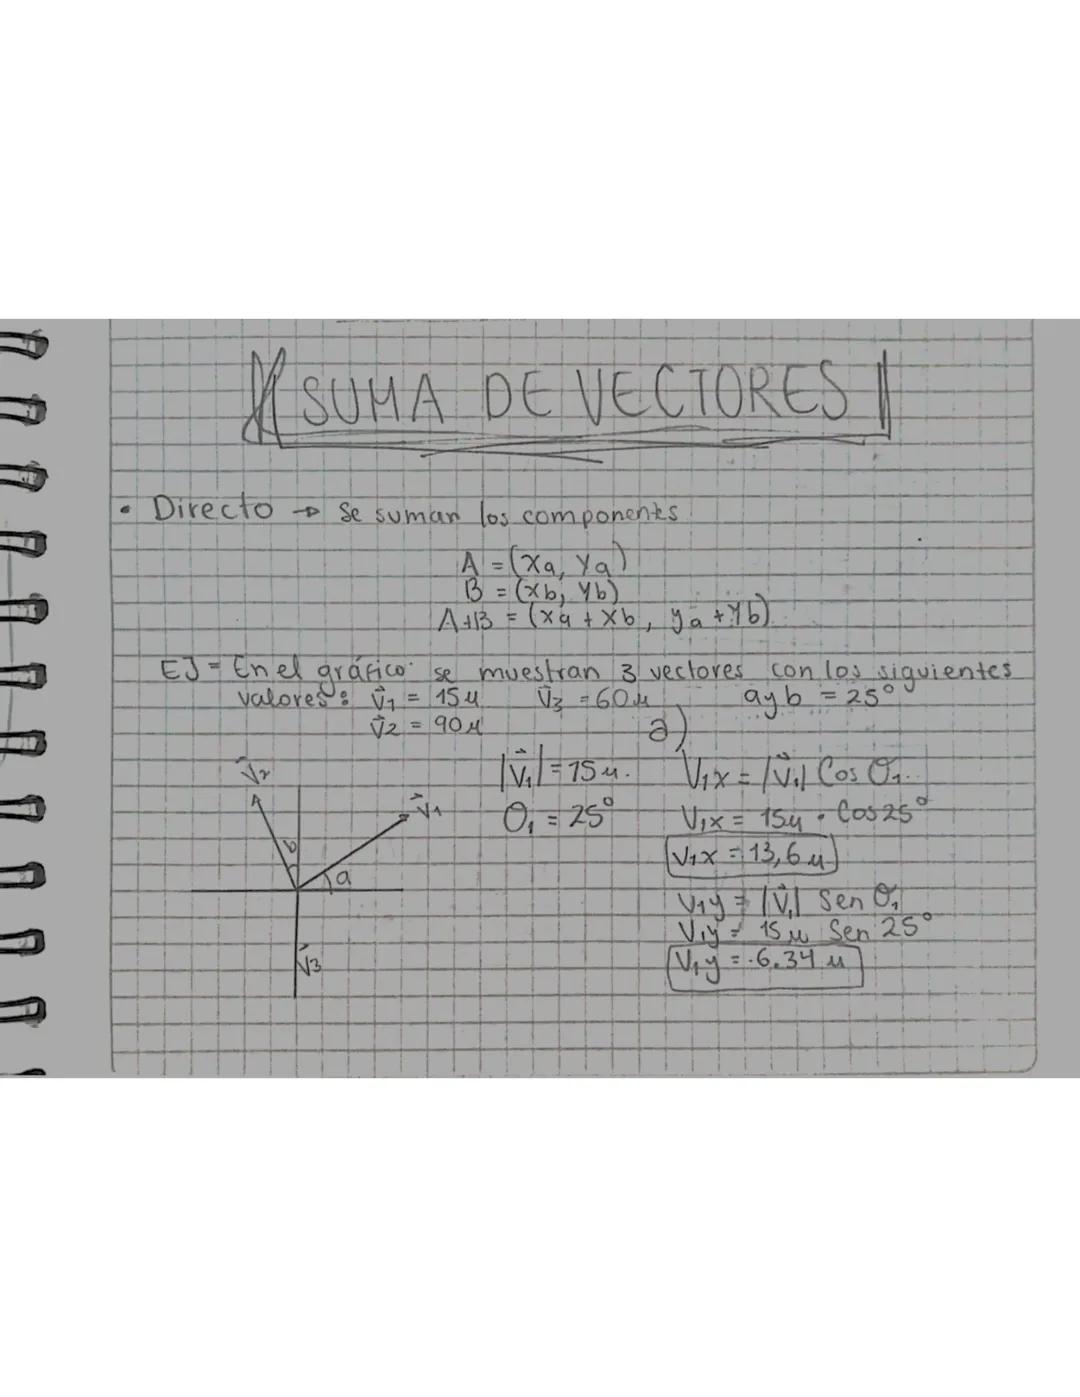 SUMA DE VECTORES
• Directo → Se suman los componentes
A = (Xa, Ya)
B = (Xb, Yb)
A+B = (Xa + Xb, ya + Yb)
EJ = En el gráfico se muestran 3 vectores con los siguientes
valores: V⃗1 = 15u V⃗3 = 60u a y b = 25°
V⃗2 = 90u
a)
|V⃗1| = 15u. V1x = |V⃗1| Cos θ1.
θ1 = 25° V1x = 15u · Cos 25°
V1x = 13,6 u
V1y = |V⃗1| Sen θ1
V1y = 15 u Sen 25°
V1y = 6.34 u
V⃗2
V⃗1
b
a
V⃗3